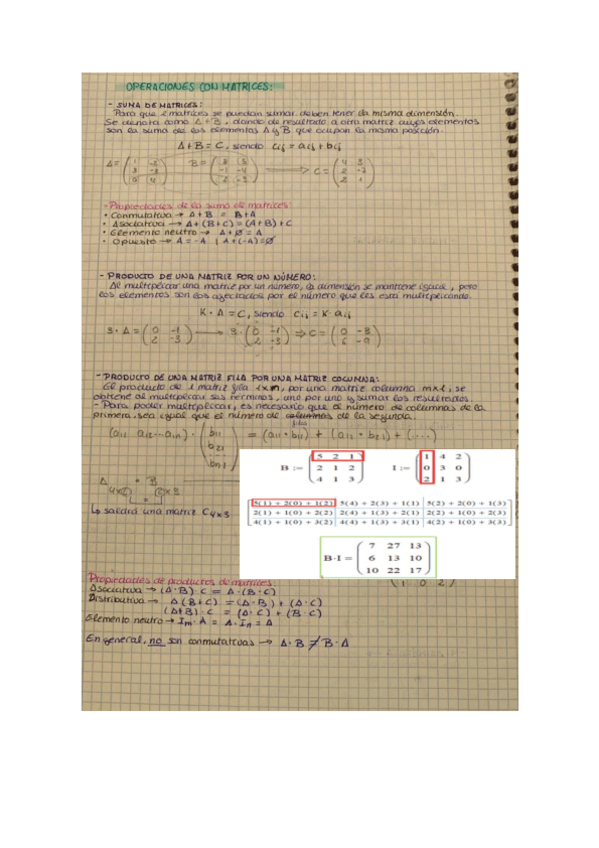 OPERACIONES CON MATRICES:
- SUMA DE MATRICES:
Para que 2 matrices se puedan sumar deben tener la misma dimensión.
Se denota como A+B, dando de resultado a otra matriz cuyos elementos
son la suma de los elementos A y B que ocupan la misma posición.
A+B = C, siendo cij = aij + bij
A = B = ⟹ C =
- Propiedades de la suma de matrices:
• Conmutativa → A+B = B+A
• Asociativa → A+(B+C) = (A+B)+C
• Elemento neutro → A+Ø = A
• Opuesto → A = -A | A+(-A) = Ø
- PRODUCTO DE UNA MATRIZ POR UN NÚMERO:
Al multiplicar una matriz por un número, la dimensión se mantiene igual, pero
los elementos son los afectados por el número que les está multiplicando.
K · A = C, siendo cij = K · aij
3 · A = (0 -1 / 2 -3) → 3 · (0 -1 / 2 -3) ⇒ C = (0 -3 / 6 -9)
- PRODUCTO DE UNA MATRIZ FILA POR UNA MATRIZ COLUMNA:
El producto de 1 matriz fila 1xm, por una matriz columna mx1, se
obtiene al multiplicar sus términos, uno por uno y sumar los resultados.
- Para poder multiplicar, es necesario que el número de columnas de la
primera sea igual que el número de columnas de la segunda.
filas
(a11 a12...a1n) · (b11 b21 : bn1) = (a11 · b11) + (a12 · b21) + (...)
B := (5 2 1 / 2 1 2 / 4 1 3) I := (1 4 2 / 0 3 0 / 2 1 3)
A · B
4x3 3x3
↳ saldrá una matriz C4x3
5(1) + 2(0) + 1(2) 5(4) + 2(3) + 1(1) 5(2) + 2(0) + 1(3)
2(1) + 1(0) + 2(2) 2(4) + 1(3) + 2(1) 2(2) + 1(0) + 2(3)
4(1) + 1(0) + 3(2) 4(4) + 1(3) + 3(1) 4(2) + 1(0) + 3(3)
B·I = (7 27 13 / 6 13 10 / 10 22 17)
(1 0 2)
Propiedades de productos de matrices:
Asociativa → (A·B)·C = A·(B·C)
Distributiva → A(B+C) = (A·B) + (A·C)
(A+B)·C = (A·C) + (B·C)
Elemento neutro → Im·A = A·In = A
En general, no son conmutativos → A·B ≠ B·A